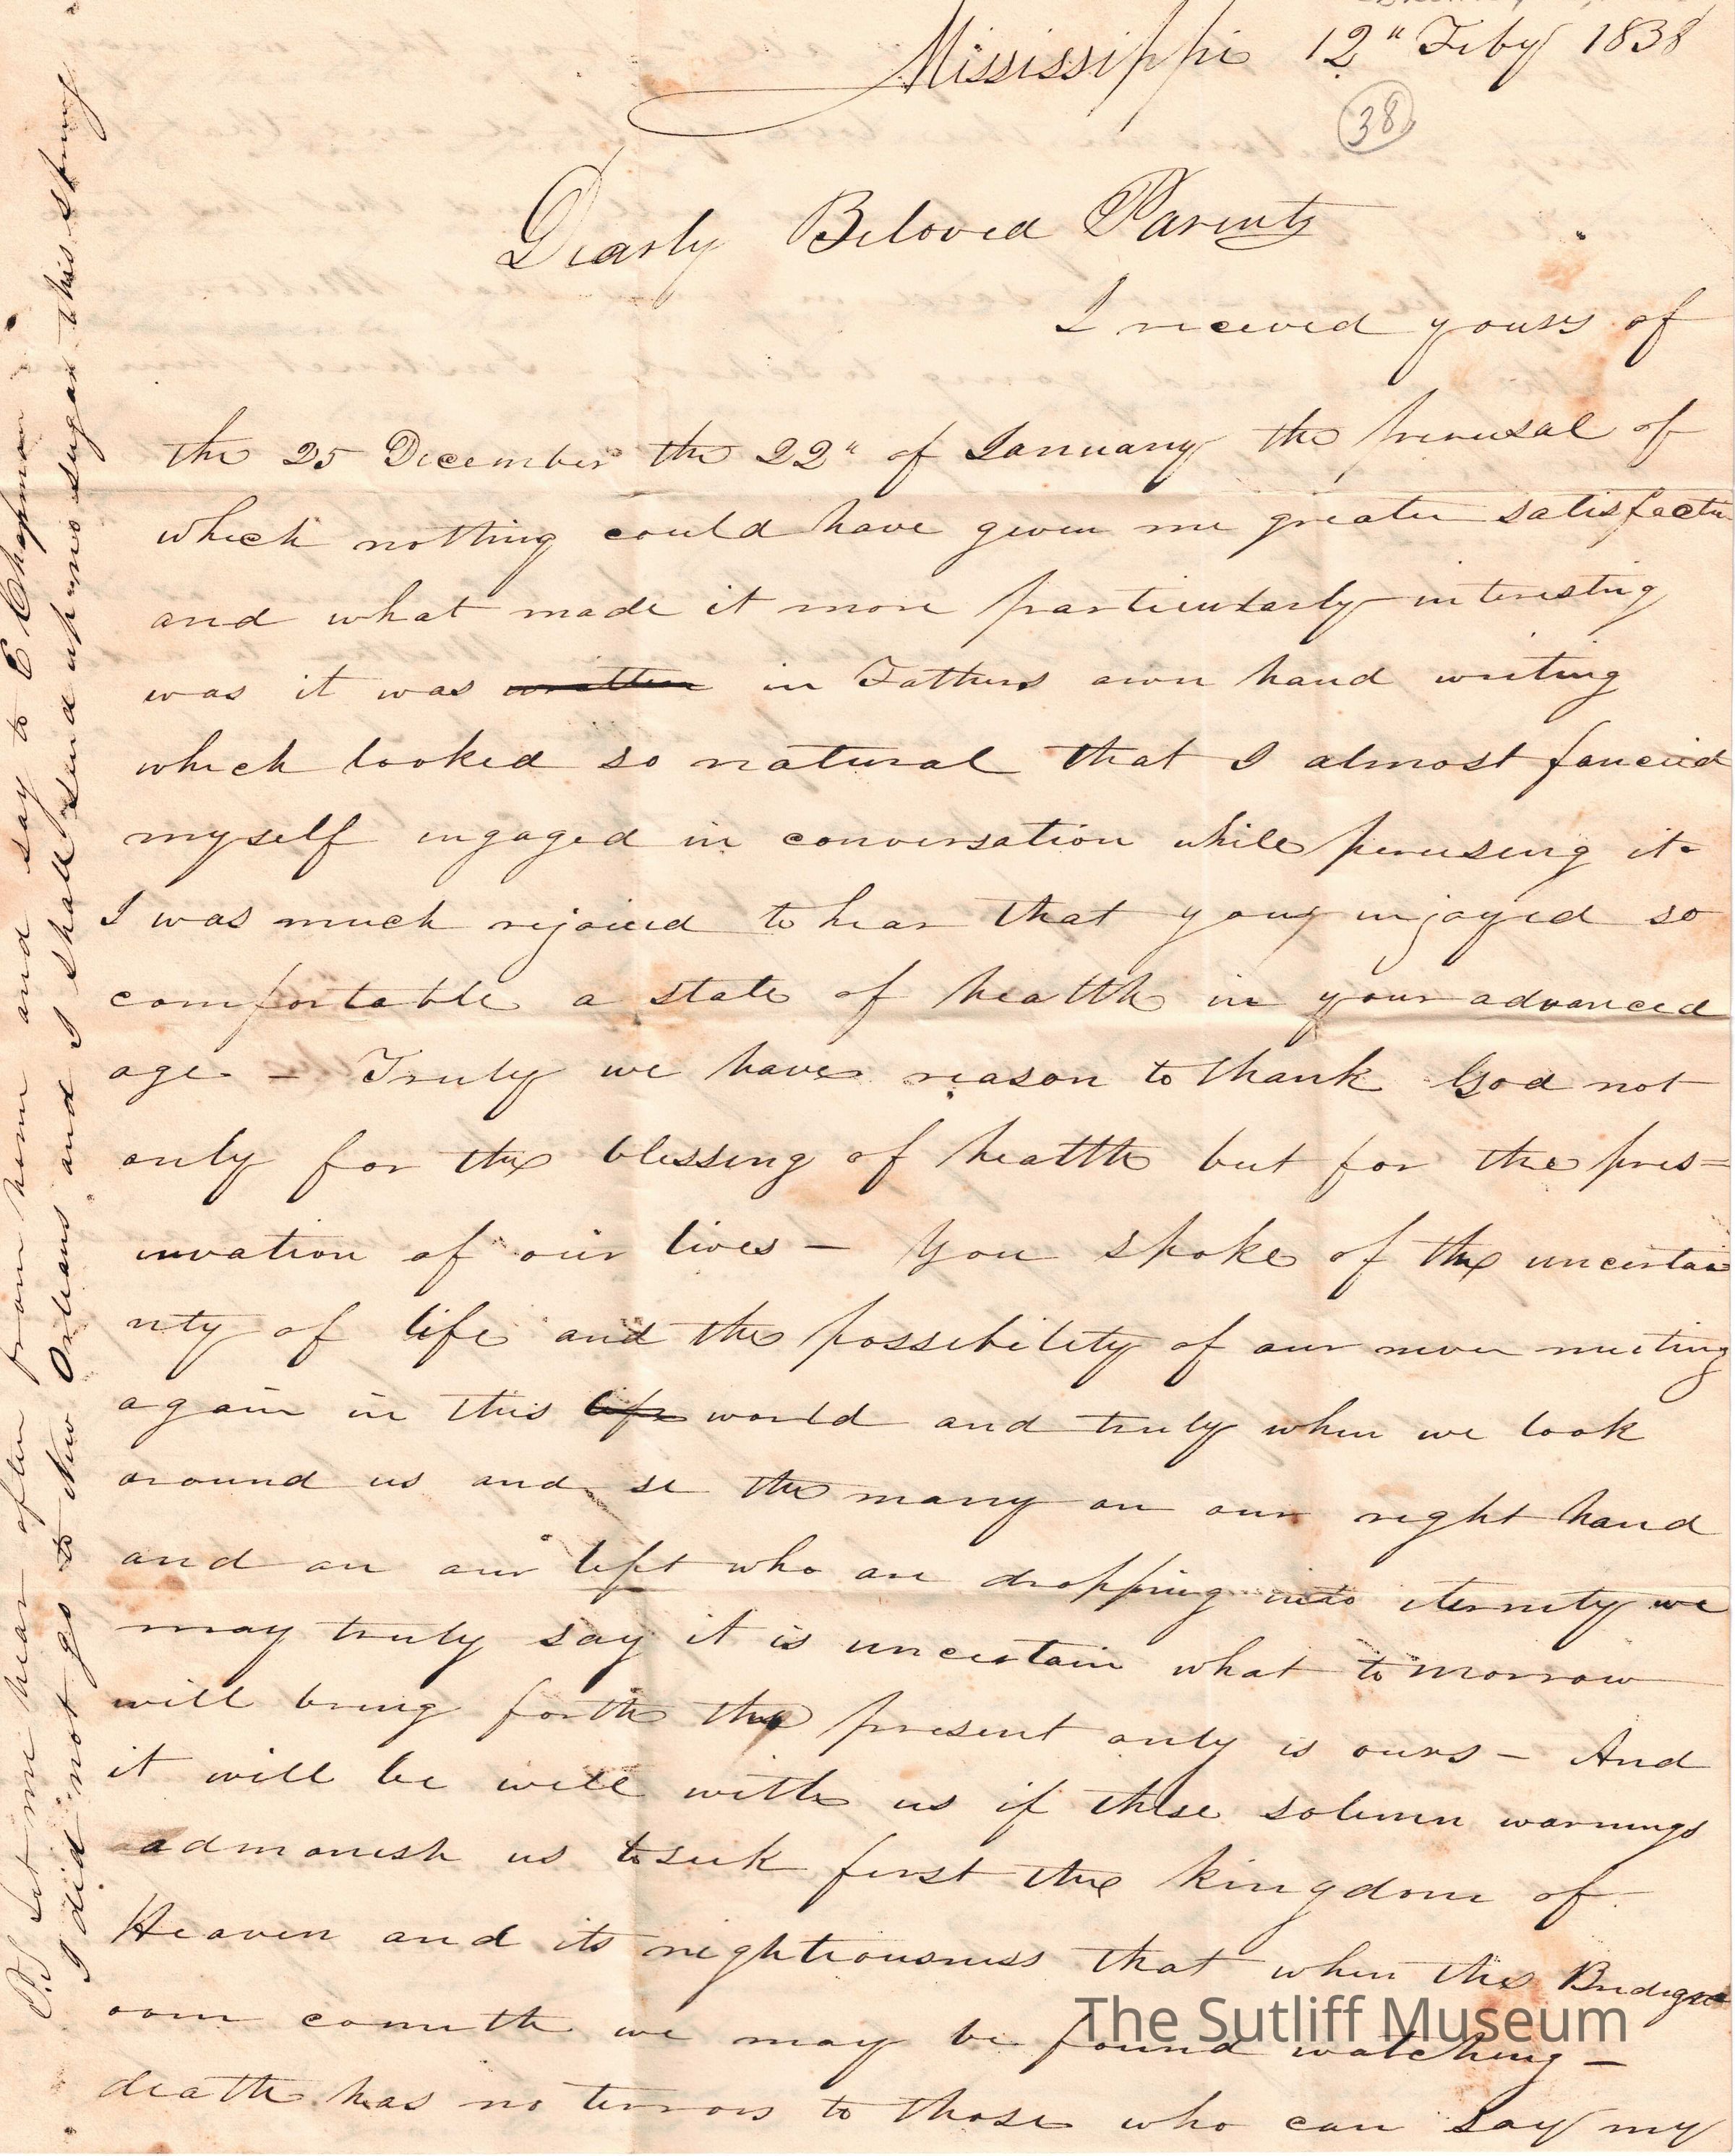 Mississippi 12" Feby 1838
38
Dearly Beloved Parents
I receved yours of
the 25 December the 22" of January the perusal of
which nothing could have given me greater satisfactn
and what made it more particularly interesting
was it was written in Fathers own hand writing
which looked so natural that I almost fancied
myself ingaged in conversation while peruseing it.
I was much rejoiced to hear that you injoyed so
comfortable a state of health in your advanced
age. – Truly we have reason to thank God not
only for the blessing of health but for the pres=
ervation of our lives – You spoke of the uncertai
nty of life and the possibility of our never meeting
again in this life world and truly when we look
around us and se the many on our right hand
and on our left who are dropping into eternity we
may truly say it is uncertain what tomorrow
will bring forth the present only is ours – And
it will be well with us if these solemn warnings
admonish us to seek first the kingdom of
Heaven and its rightiousness that when the Bridegr
oom cometh we may be found watching –
death has no terrors to those who can say my
P.S Let me hear often from home and say to E Chapman
I did not go to New Orleans and I shall send up no sugar this spring
The Sutliff Museum